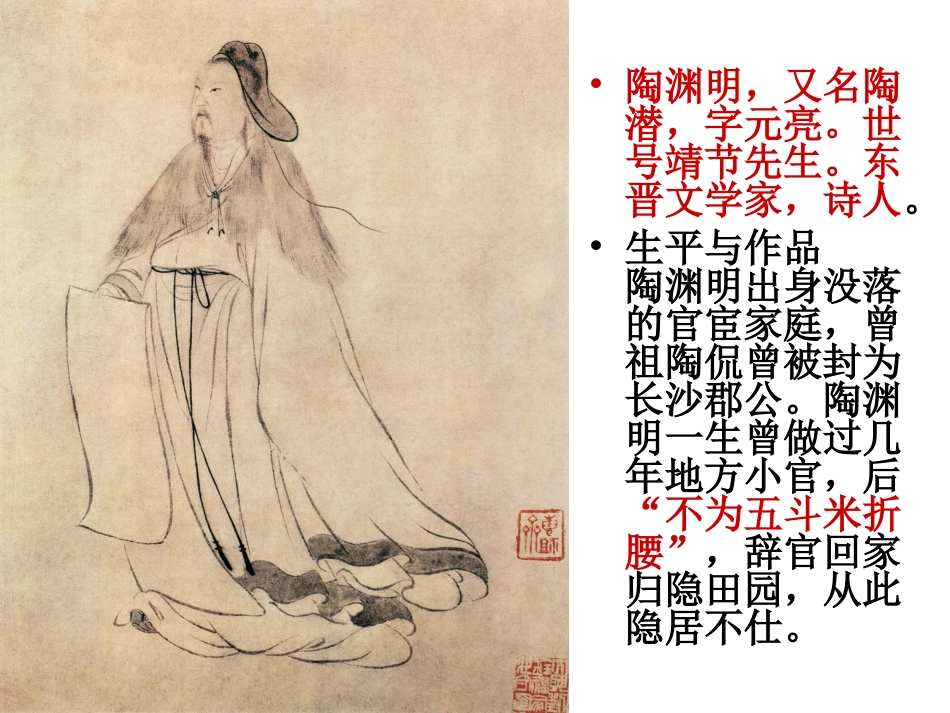 • 陶渊明，又名陶
潜，字元亮。世
号靖节先生。东
晋文学家，诗人。
• 生平与作品
陶渊明出身没落
的官宦家庭，曾
祖陶侃曾被封为
长沙郡公。陶渊
明一生曾做过几
年地方小官，后
“不为五斗米折
腰”，辞官回家
归隐田园，从此
隐居不仕。